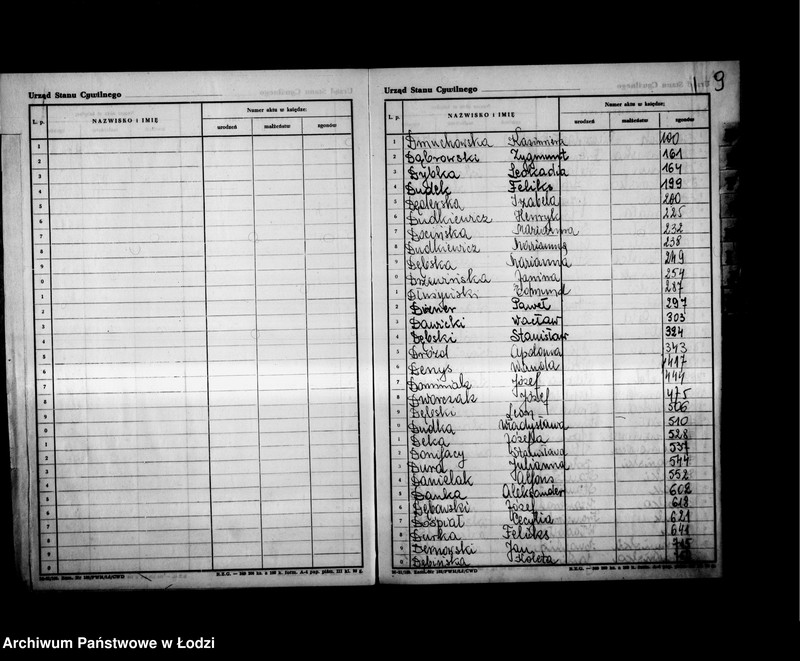 Urząd Stanu Cywilnego
L. p. NAZWISKO i IMIĘ Numer aktu w księdze:
urodzeń małżeństw zgonów
1
2
3
4
5
6
7
8
9
0
1
2
3
4
5
6
7
8
9
0
1
2
3
4
5
6
7
8
9
0
9
Urząd Stanu Cywilnego
L. p. NAZWISKO i IMIĘ Numer aktu w księdze:
urodzeń małżeństw zgonów
1 Dmuchowska Kazimiera 100
2 Dąbrowski Zygmunt 161
3 Dybka Leokadia 164
4 Dudek Feliks 199
5 Izabela 200
6 Dudkiewicz Henryk 225
7 Docińska Marianna 232
8 Dudkiewicz Marianna 238
9 Dębska Marianna 249
0 Janina 254
1 Dłużyński Edmund 287
2 Paweł 297
3 Dawicki Wacław 303
4 Dębski Stanisław 324
5 Drózd Apolonia 343
6 Denys Wanda 417
7 Dominiak Józef 444
8 Dworczak Józef 475
9 Dębski Leon 506
0 Dudka Władysława 510
1 Deka Józefa 528
2 Bonifacy Stanisława 537
3 Dura Julianna 544
4 Danielak Alfons 552
5 Danka Aleksander 602
6 Dębowski Józef 618
7 Dospiał Cecylia 621
8 Durka Feliks 641
9 Dernowski Jan 715
0 Dębińska Koleta
Archiwum Państwowe w Łodzi